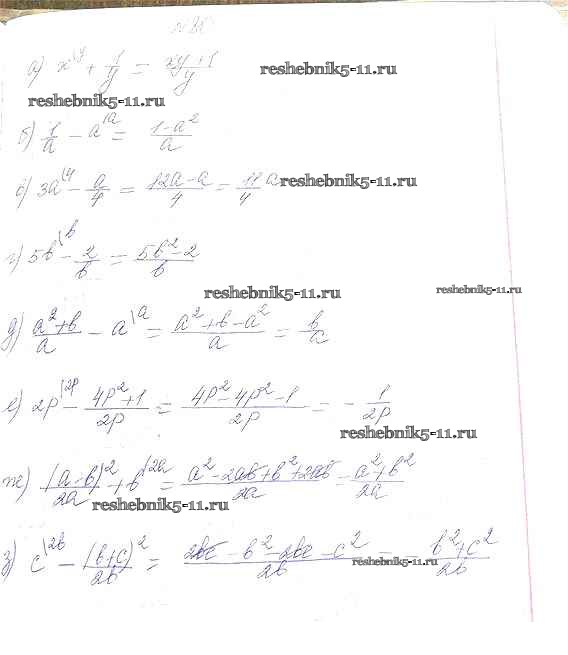 № 80
а) x^{\y} + 1/y = (xy+1)/y reshebnik5-11.ru
reshebnik5-11.ru
б) 1/a - a^{\a} = (1-a²)/a
в) 3a^{\4} - a/4 = (12a-a)/4 = 11/4 a reshebnik5-11.ru
г) 5b^{\b} - 2/b = (5b²-2)/b
reshebnik5-11.ru reshebnik5-11.ru
д) (a²+b)/a - a^{\a} = (a²+b-a²)/a = b/a
е) 2p^{\2p} - (4p²+1)/2p = (4p²-4p²-1)/2p = -1/2p
reshebnik5-11.ru
ж) (a-b)²/2a + b^{\2a} = (a²-2ab+b²+2ab)/2a = (a²+b²)/2a
reshebnik5-11.ru
з) c^{\2b} - (b+c)²/2b = (2bc-b²-2bc-c²)/2b = -(b²+c²)/2b
reshebnik5-11.ru